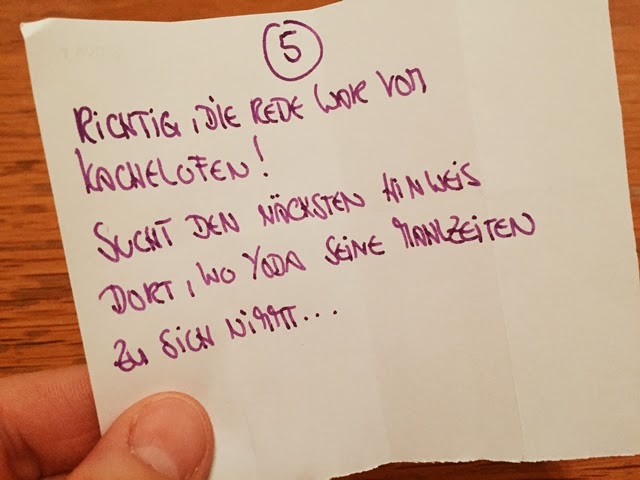 5
RICHTIG, DIE REDE WAR VOM
KACHELOFEN!
SUCHT DEN NÄCHSTEN HINWEIS
DORT, WO YODA SEINE MAHLZEITEN
ZU SICH NIMMT...